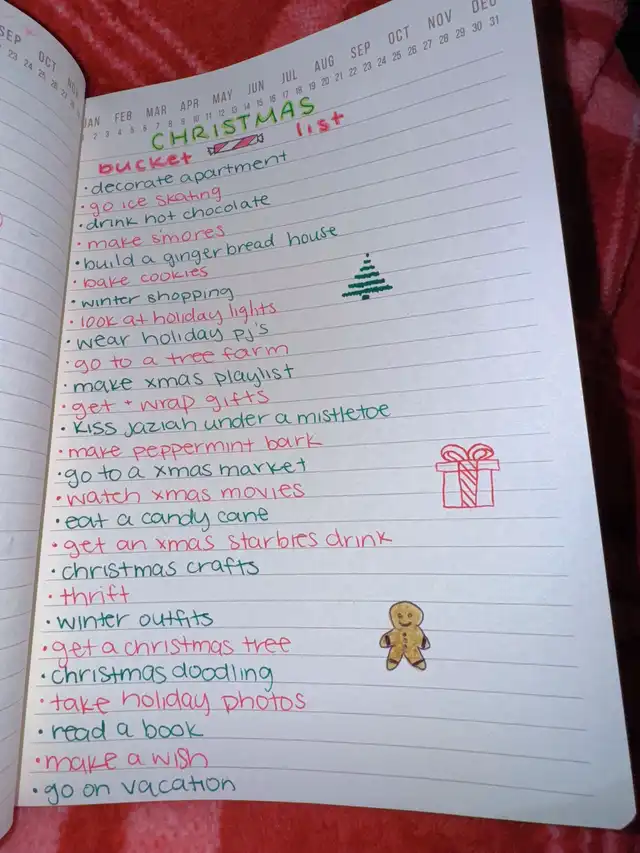 SEP OCT NOV
23 24 25 26 27 28
JAN FEB MAR APR MAY JUN JUL AUG SEP OCT NOV DEC
2 3 4 5 6 7 8 9 10 11 12 13 14 15 16 17 18 19 20 21 22 23 24 25 26 27 28 29 30 31
CHRISTMAS
bucket list
· decorate apartment
· go ice skating
· drink hot chocolate
· make s'mores
· build a gingerbread house
· bake cookies
· winter shopping
· look at holiday lights
· wear holiday pj's
· go to a tree farm
· make xmas playlist
· get + wrap gifts
· kiss Jaziah under a mistletoe
· make peppermint bark
· go to a xmas market
· watch xmas movies
· eat a candy cane
· get an xmas starbies drink
· christmas crafts
· thrift
· winter outfits
· get a christmas tree
· christmas doodling
· take holiday photos
· read a book
· make a wish
· go on vacation